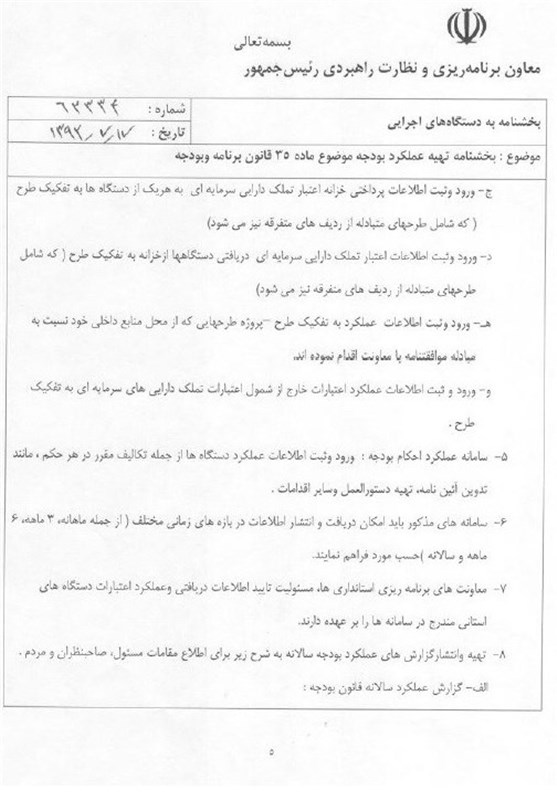 بسمه‌تعالی
معاون برنامه‌ریزی و نظارت راهبردی رئیس‌جمهور
بخشنامه به دستگاه‌های اجرایی
شماره : ۶۲۳۳۴
تاریخ : ۱۳۹۲/۷/۱۷
موضوع : بخشنامه تهیه عملکرد بودجه موضوع ماده ۳۵ قانون برنامه وبودجه
ج- ورود وثبت اطلاعات پرداختی خزانه اعتبار تملک دارایی سرمایه ای به هریک از دستگاه ها به تفکیک طرح
( که شامل طرحهای متبادله از ردیف های متفرقه نیز می شود)
د- ورود وثبت اطلاعات اعتبار تملک دارایی سرمایه ای دریافتی دستگاهها ازخزانه به تفکیک طرح ( که شامل
طرحهای متبادله از ردیف های متفرقه نیز می شود)
هـ- ورود وثبت اطلاعات عملکرد به تفکیک طرح –پروژه طرحهایی که از محل منابع داخلی خود نسبت به
مبادله موافقتنامه یا معاونت اقدام نموده اند.
و- ورود و ثبت اطلاعات عملکرد اعتبارات خارج از شمول اعتبارات تملک دارایی های سرمایه ای به تفکیک
طرح .
۵- سامانه عملکرد احکام بودجه : ورود وثبت اطلاعات عملکرد دستگاه ها از جمله تکالیف مقرر در هر حکم ، مانند
تدوین آئین نامه، تهیه دستورالعمل وسایر اقدامات .
۶- سامانه های مذکور باید امکان دریافت و انتشار اطلاعات در بازه های زمانی مختلف ( از جمله ماهانه، ۳ ماهه، ۶
ماهه و سالانه )حسب مورد فراهم نمایند.
۷- معاونت های برنامه ریزی استانداری ها، مسئولیت تایید اطلاعات دریافتی وعملکرد اعتبارات دستگاه های
استانی مندرج در سامانه ها را بر عهده دارند.
۸- تهیه وانتشارگزارش های عملکرد بودجه سالانه به شرح زیر برای اطلاع مقامات مسئول، صاحبنظران و مردم .
الف- گزارش عملکرد سالانه قانون بودجه :
۵